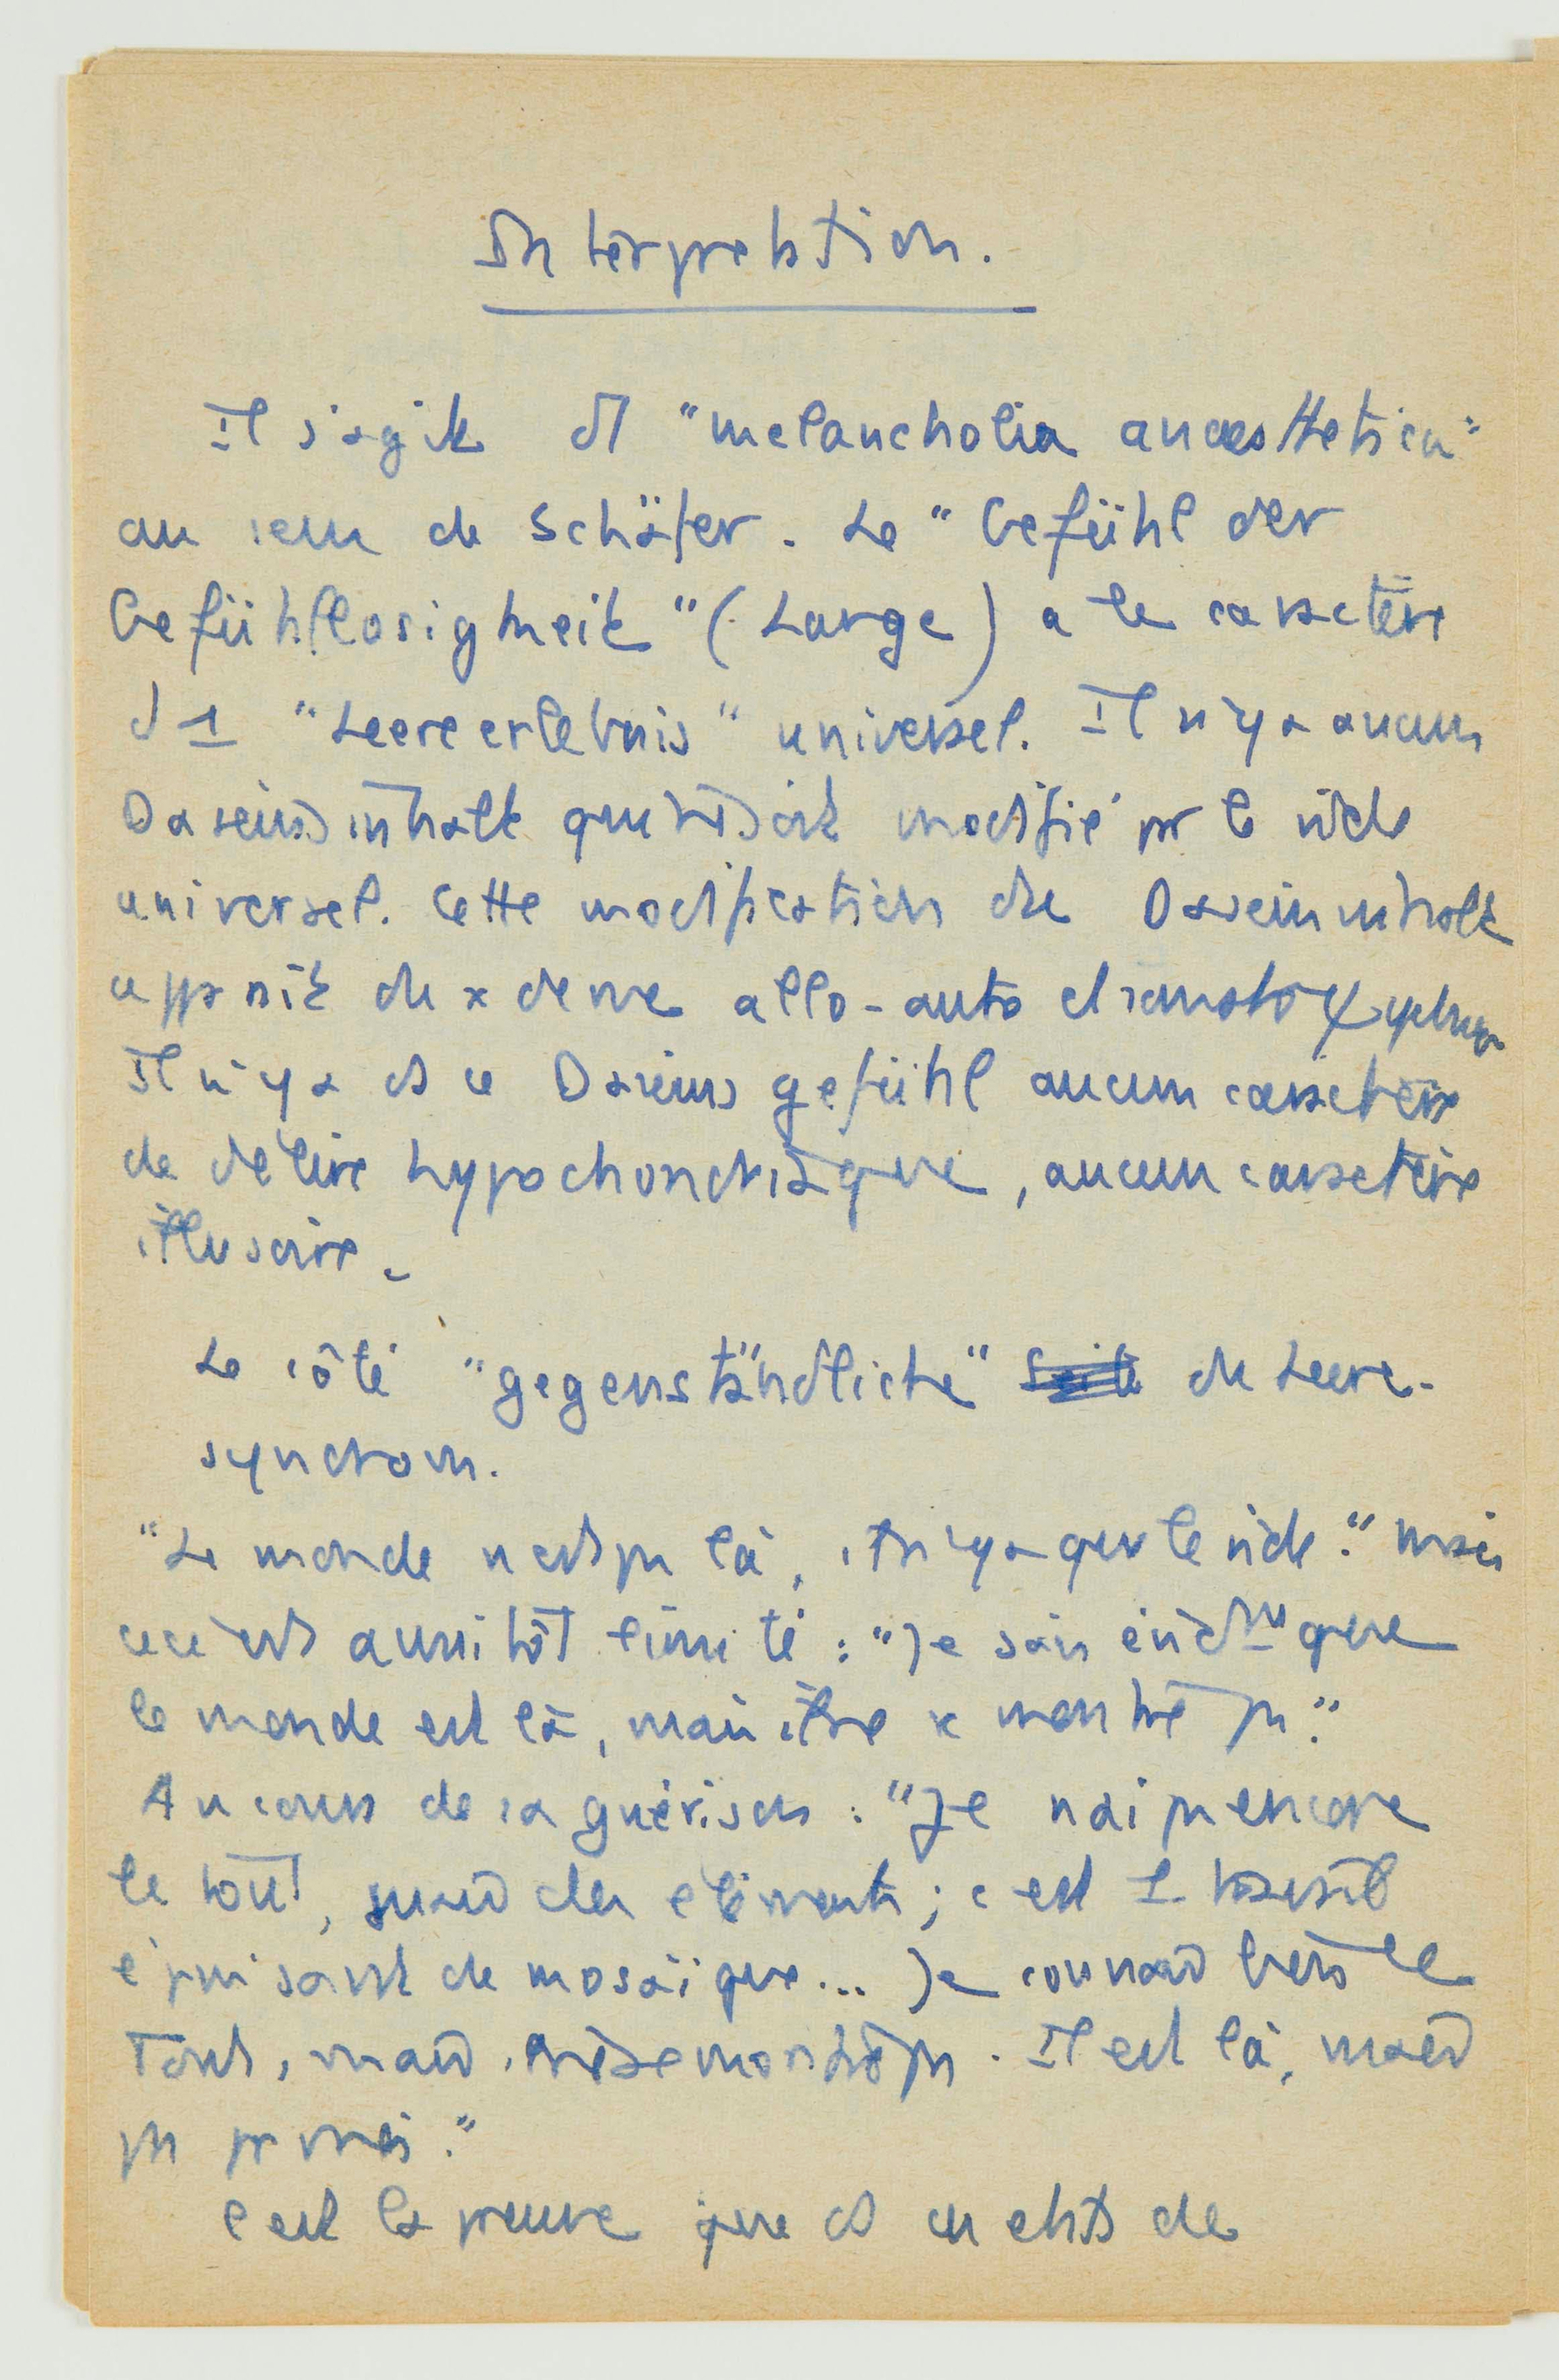 Interpretation.
Il s'agit d'1 "melancholia anaesthetica"
au sens de Schäfer. Le "Gefühl der
Gefühllosigkeit" (Lange) a le caractère
d'1 "Leereerlebnis" universel. Il n'y a aucun
Daseinsinhalt qui ne soit modifié par le vide
universel. Cette modification du Daseinsinhalt
apparaît de x derne allo-auto et somatopsychique
Il n'y a ds ce Daseinsgefühl aucun caractère
de délire hypochondriaque, aucun caractère
illusoire.
Le côté "gegenständliche" du Leere-
syndrom.
"Le monde n'est pas là, il n'y a que le vide." Mais
ceci est aussitôt limité : "Je sais évidmt que
le monde est là, mais il ne se montre pas."
Au cours de sa guérison : "Je n'ai pas encore
le tout, mais des éléments ; c'est 1 travail
épuisant de mosaïque... Je connais bien le
tout, mais il ne se montre pas. Il est là, mais
pas pr moi."
C'est la preuve que ds un état de